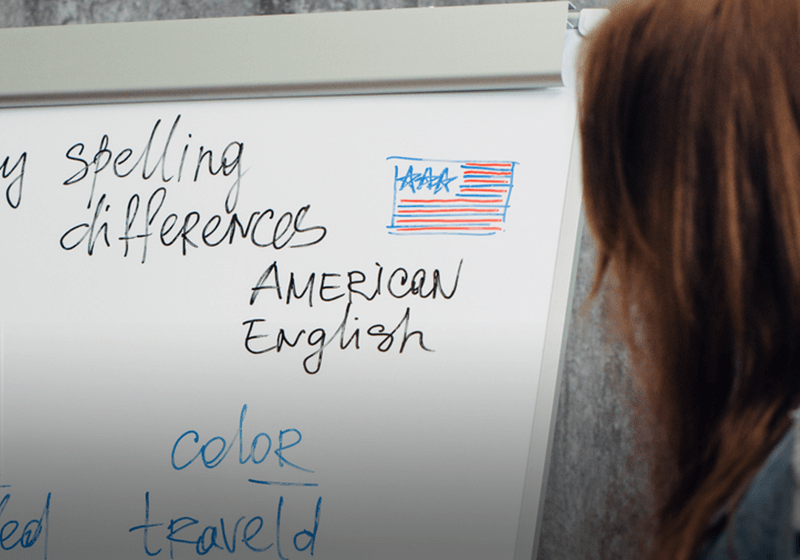 y spelling
differences
AMERICAN
English
color
led traveld